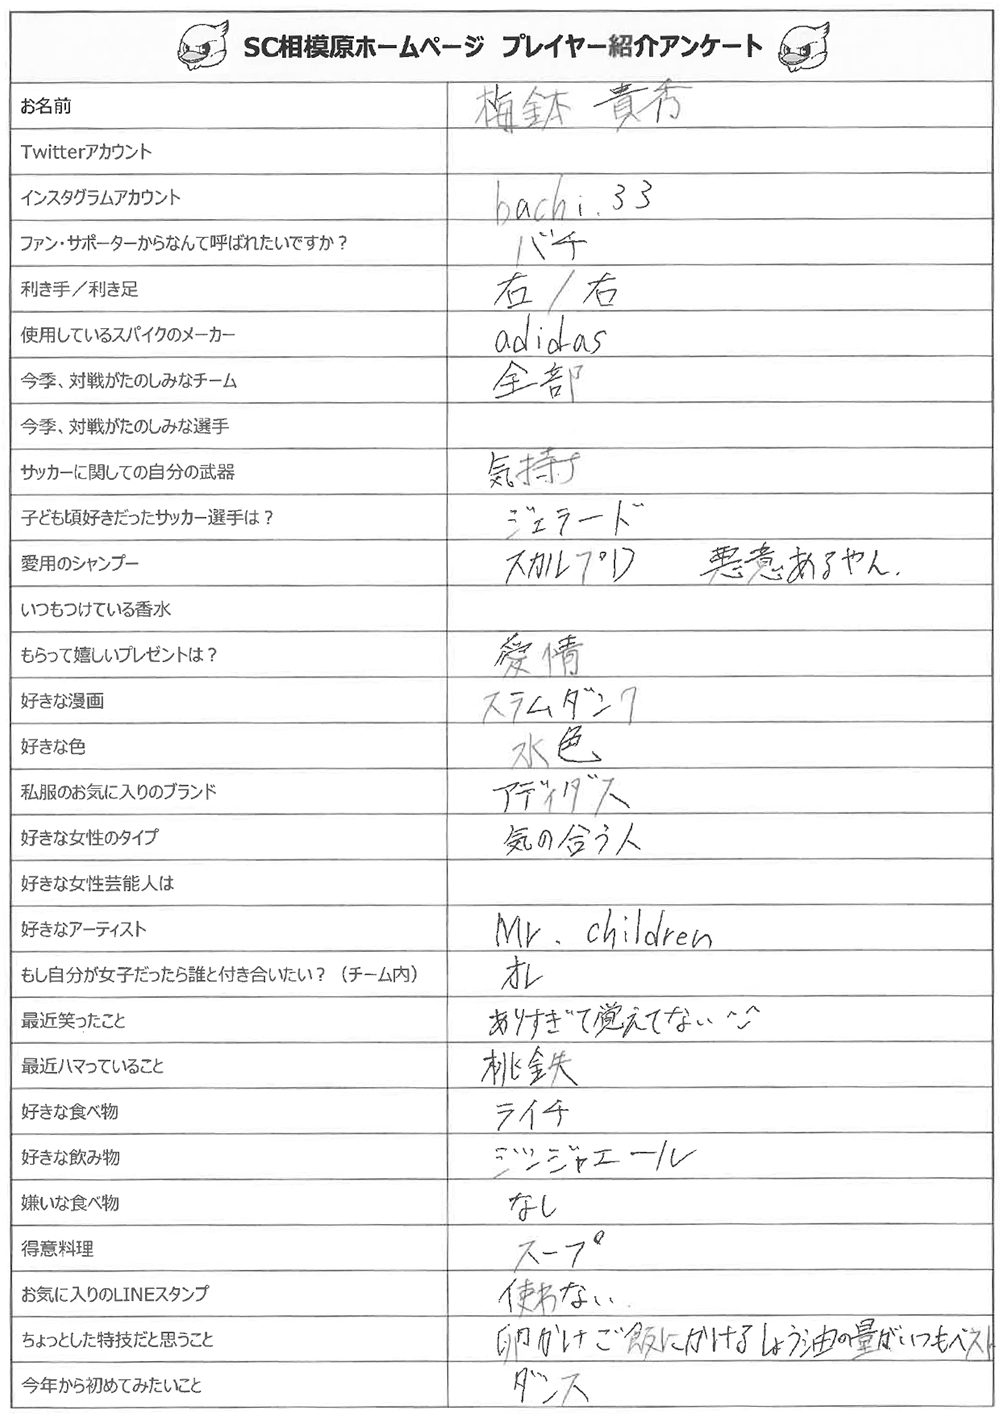 SC相模原ホームページ プレイヤー紹介アンケート
お名前 梅鉢 貴秀
Twitterアカウント
インスタグラムアカウント bachi.33
ファン・サポーターからなんて呼ばれたいですか? バチ
利き手/利き足 右/右
使用しているスパイクのメーカー adidas
今季、対戦がたのしみなチーム 全部
今季、対戦がたのしみな選手
サッカーに関しての自分の武器 気持ち
子ども頃好きだったサッカー選手は? ジェラード
愛用のシャンプー スカルプD 悪意あるやん.
いつもつけている香水
もらって嬉しいプレゼントは? 愛情
好きな漫画 スラムダンク
好きな色 水色
私服のお気に入りのブランド アディダス
好きな女性のタイプ 気の合う人
好きな女性芸能人は
好きなアーティスト Mr. children
もし自分が女子だったら誰と付き合いたい? (チーム内) オレ
最近笑ったこと ありすぎて覚えてない ^_^
最近ハマっていること 桃鉄
好きな食べ物 ライチ
好きな飲み物 ジンジャエール
嫌いな食べ物 なし
得意料理 スープ
お気に入りのLINEスタンプ 使わない.
ちょっとした特技だと思うこと 卵かけご飯にかけるしょう油の量がいつもベスト
今年から初めてみたいこと ダンス